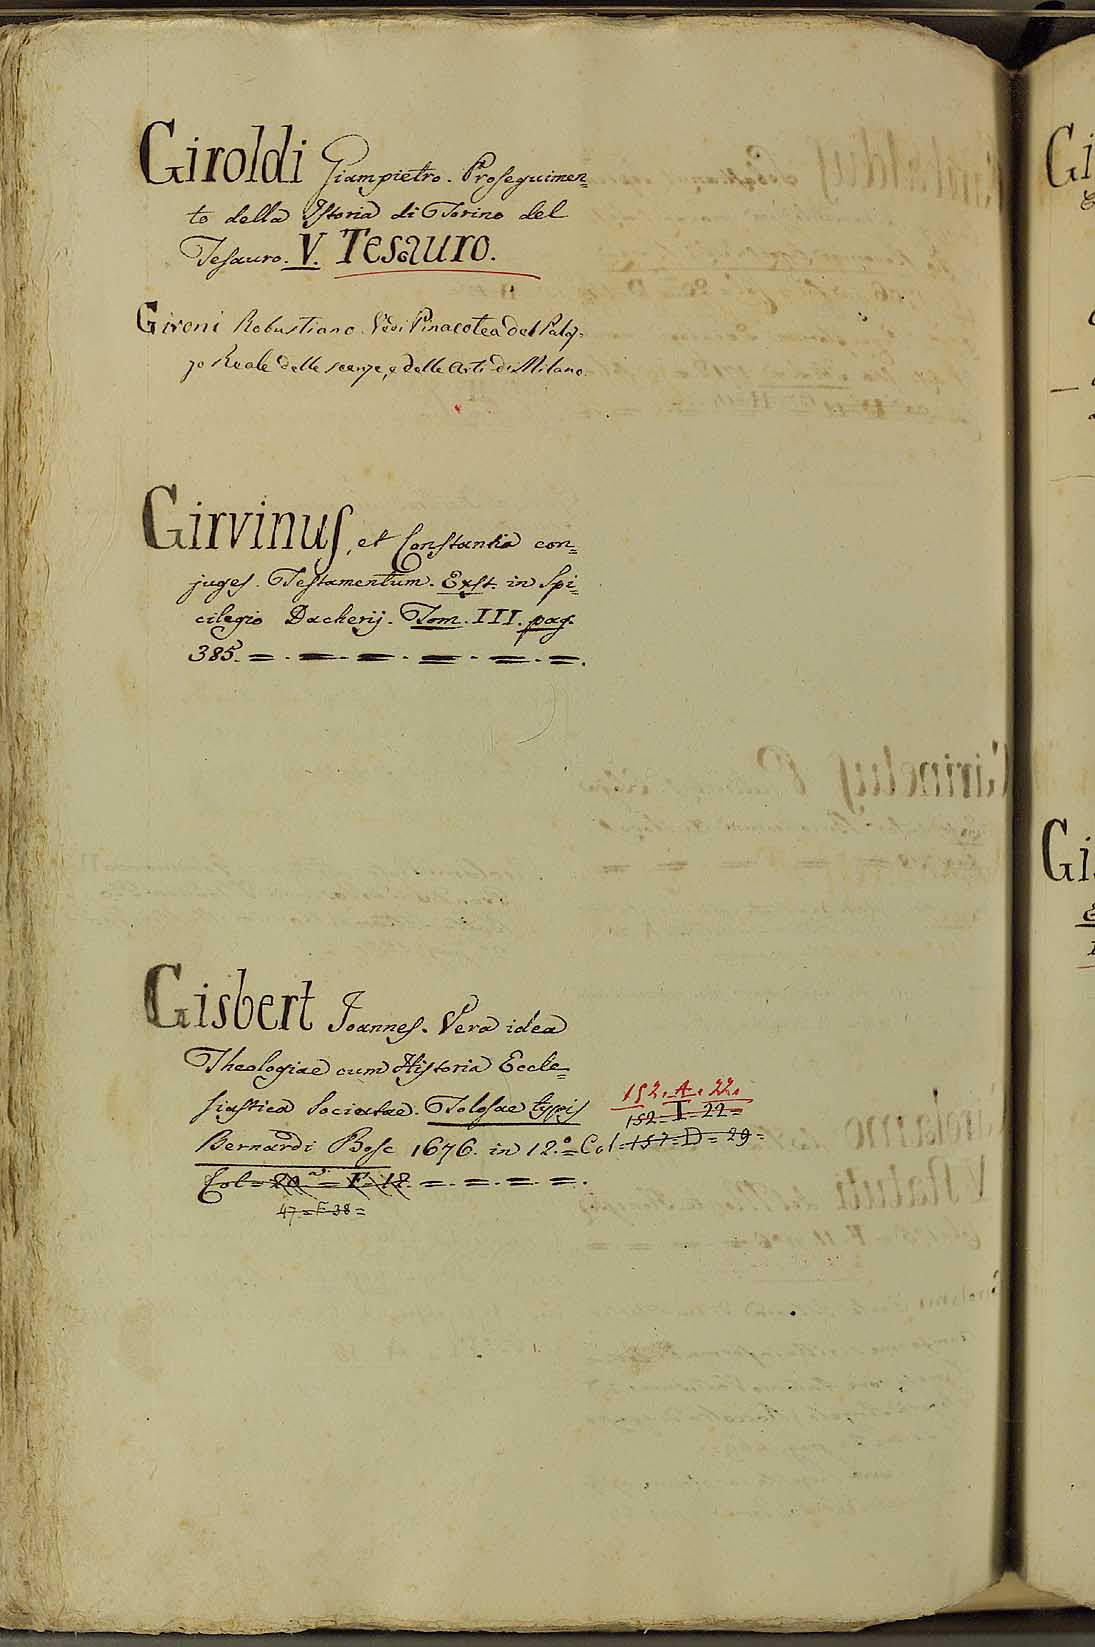 Giroldi Giampietro. Proseguimen=
to della Istoria di Torino del
Tesauro. V. Tesauro.
Gironi Robustiano. Vedi Pinacotea del Palaz-
zo Reale delle scienze, e delle Arti di Milano.
Girvinus, et Constantia con=
juges. Testamentum. Exst. in Spi=
cilegio Dacherij. Tom. III. pag.
385. = . = . = . = . = . = .
Gisbert Joannes. Vera idea
Theologiae cum Historia Eccle=
siastica Sociatae. Tolosae typis
152. A. 22.
152 = I = 22 =
Bernardi Bosc 1676. in 12.° = Col = 157 = D = 29 =
Col = 20 = F = 18 = . = . = . = .
47 = F 38 =
Gi
Gi